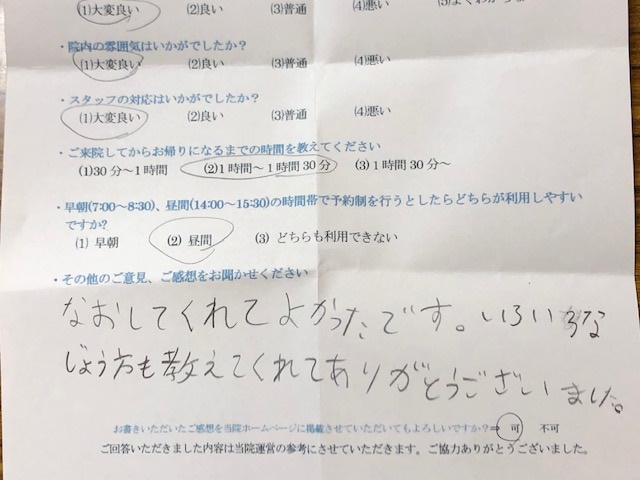 (1)大変良い (2)良い (3)普通 (4)悪い
・院内の雰囲気はいかがでしたか？
(1)大変良い (2)良い (3)普通 (4)悪い
・スタッフの対応はいかがでしたか？
(1)大変良い (2)良い (3)普通 (4)悪い
・ご来院してからお帰りになるまでの時間を教えてください
(1)30分～1時間 (2)1時間～1時間30分 (3)1時間30分～
・早朝(7:00～8:30)、昼間(14:00～15:30)の時間帯で予約制を行うとしたらどちらが利用しやすい
ですか?
(1) 早朝 (2) 昼間 (3) どちらも利用できない
・その他のご意見、ご感想をお聞かせください
なおしてくれてよかったです。いろいろな
じょう方も教えてくれてありがとうございました。
お書きいただいたご感想を当院ホームページに掲載させていただいてもよろしいですか？⇒ 可 不可
ご回答いただきました内容は当院運営の参考にさせていただきます。ご協力ありがとうございました。